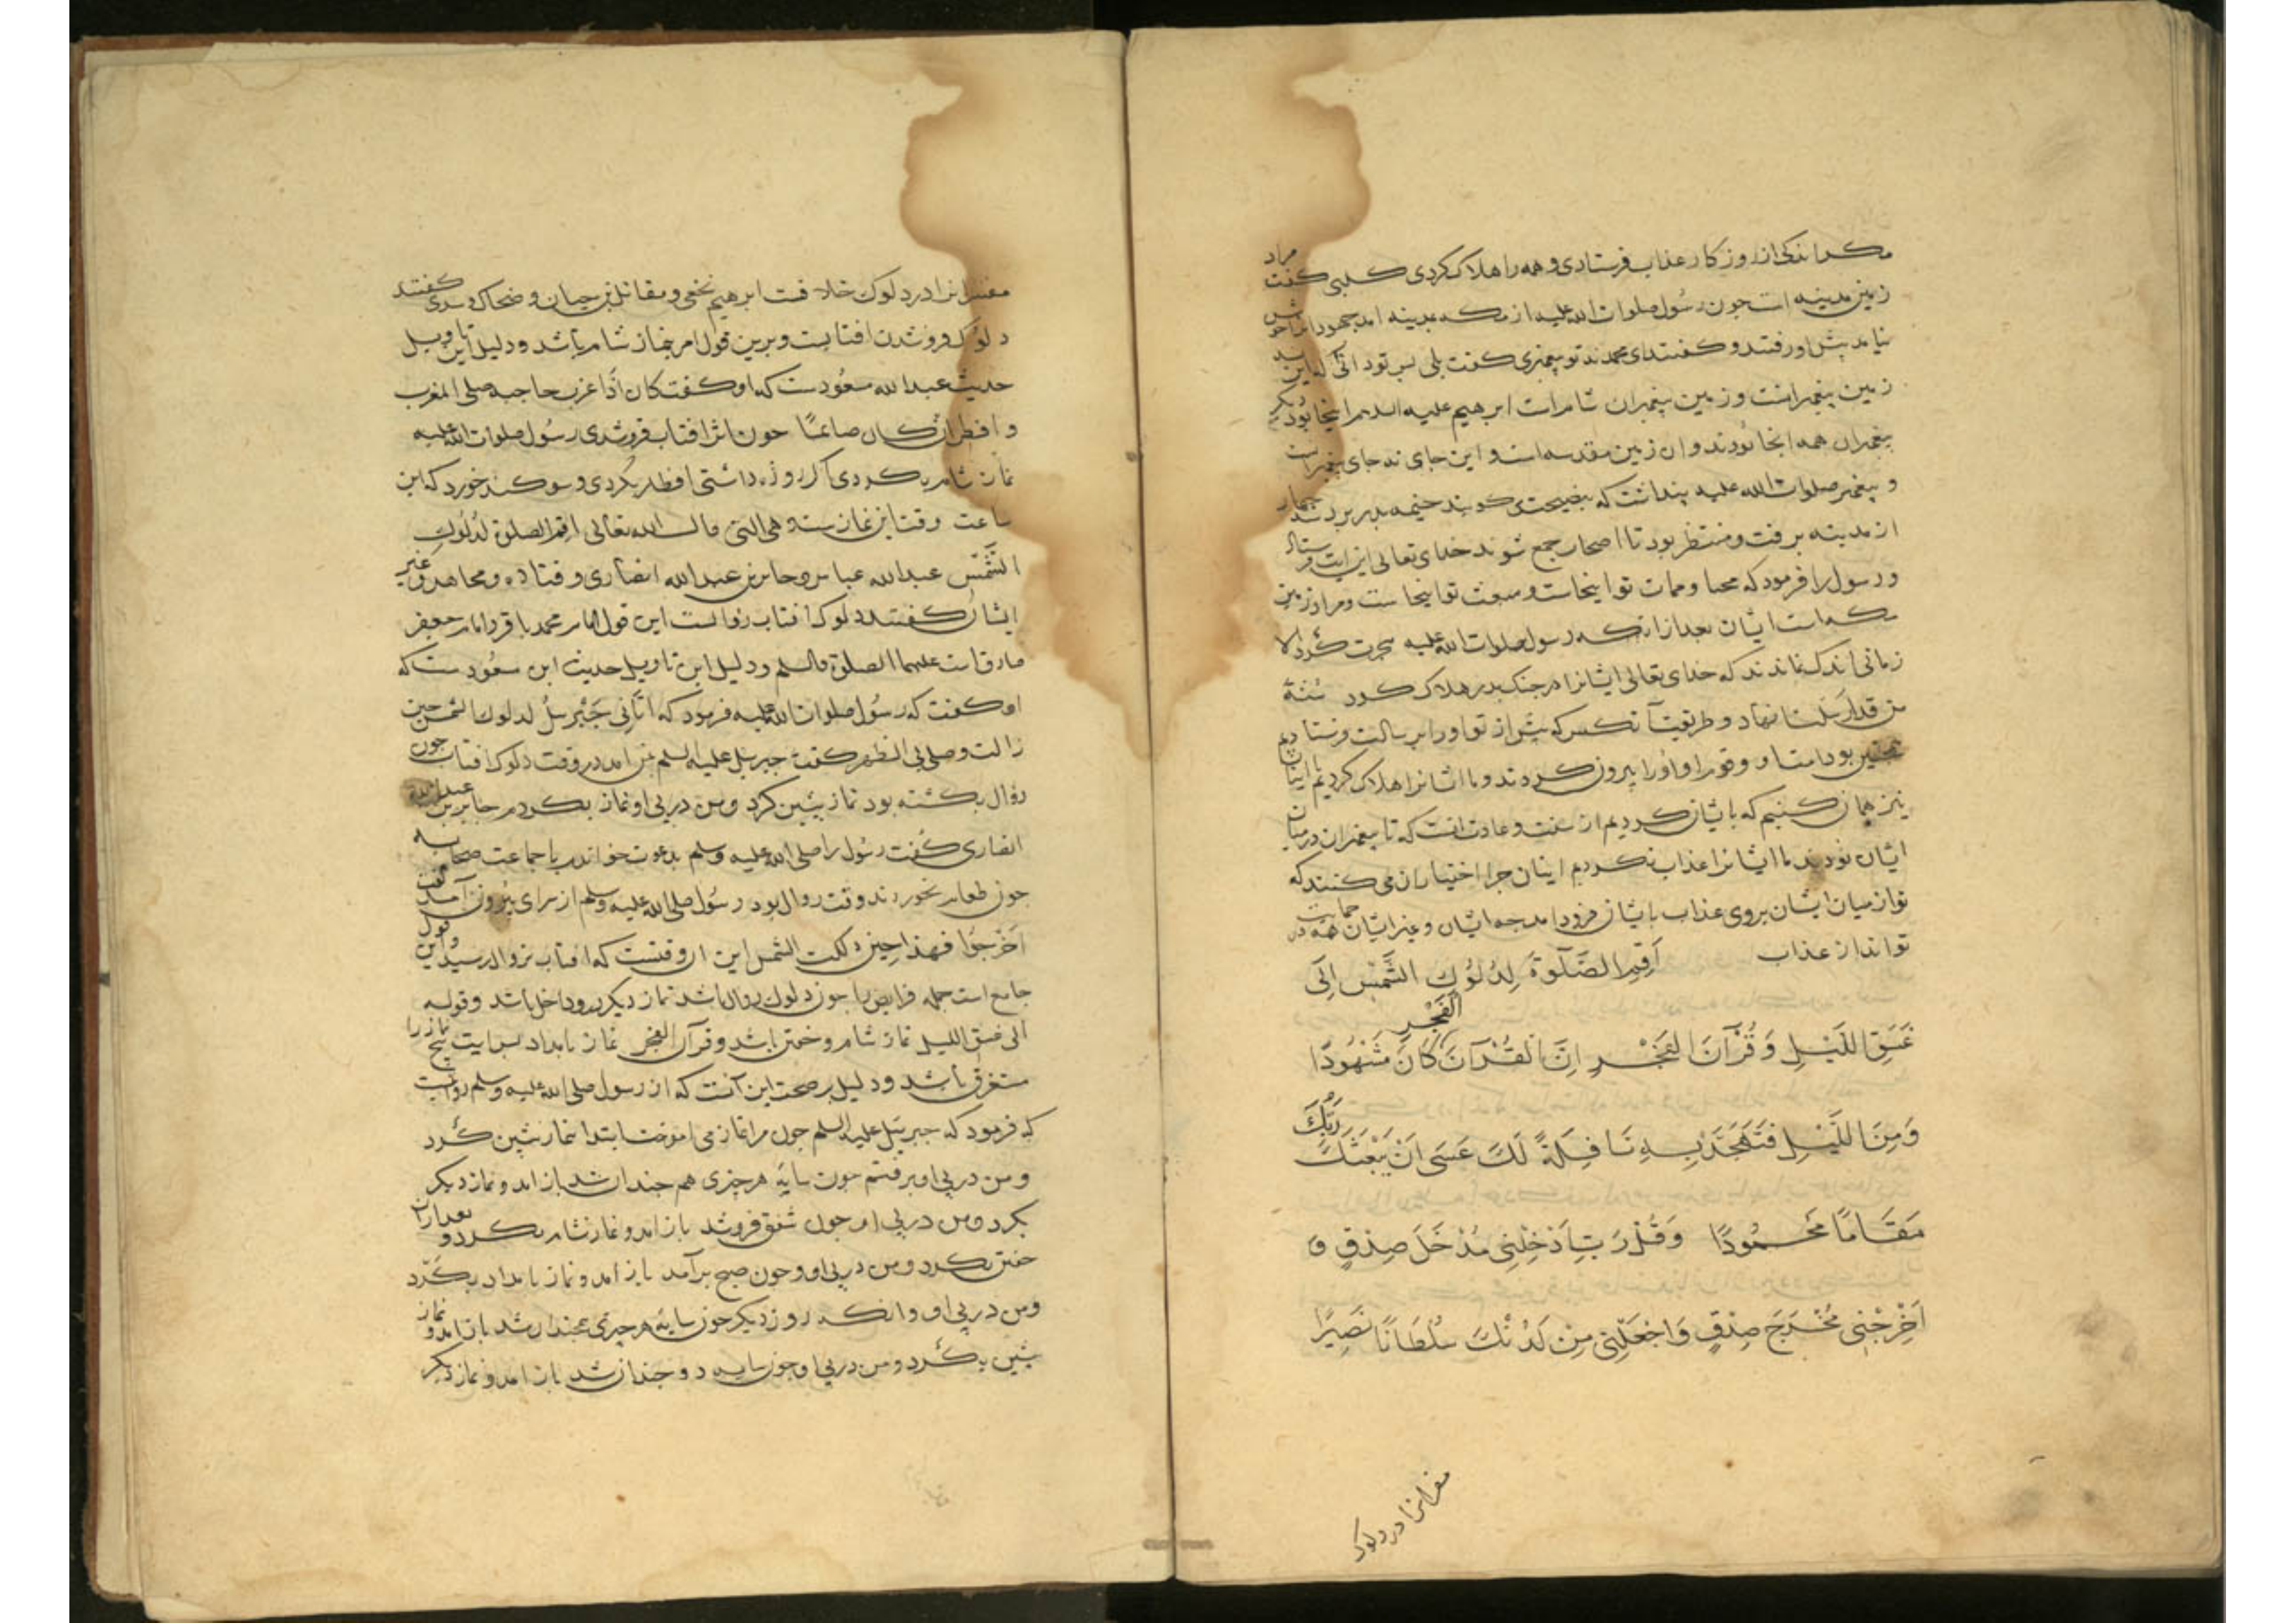 مکر اندکی از روزکار عذاب فرستادی و همه را هلاک کردی کلبی کفت مراد
زمین مدینه است جون رسول صلوات الله علیه از مکه بمدینه امد جهودانرا خوش
نیامد پیش او رفتند و کفتند ای محمد نه تو پیغمبری کفت بلی پس تو دانی که این نه
زمین پیغمبرانست و زمین پیغمبران شام است ابرهیم علیه السلم انجا بود و دیکر
پیغمبران همه انجا بودند و ان زمین مقدسه است و این جای نه جای پیغمبرانست
و پیغمبر صلوات الله علیه پنداشت که نصیحت می کویند خیمه بدر بردند
از مدینه برفت و منتظر بود تا اصحاب جمع شوند خدای تعالی این ایت فرستاد
و رسول را فرمود که محیا و ممات تو اینجاست و مبعث تو اینجاست و مراد زمین
مکه است ایشان بعد از انکه رسول صلوات الله علیه هجرت کرد الا
زمانی اندک نماندند که خدای تعالی ایشانرا در جنک بدر هلاک کرد سُنَّةَ
من قد ارسلنا نهاد و طریقت آنکس که پیش از تو او را برسالت فرستادیم
همچنین بود امت او و قوم او او را بیرون کردند و ما ایشانرا هلاک کردیم با اینان
نیز همان کنیم که با ایشان کردیم از سنت و عادت انست که تا پیغمبران در میان
ایشان بودند ما ایشانرا عذاب نکردیم اینان جرا اختیار ان می کنند که
تو از میان ایشان بروی عذاب بایشان فرود امد جه ایشان و غیر ایشان همه در حمایت
تواند از عذاب اَقِمِ الصَّلٰوةَ لِدُلُوكِ الشَّمْسِ اِلَى
غَسَقِ اللَّيْلِ وَ قُرْآنَ الْفَجْرِ اِنَّ الْقُرْآنَ الْفَجْرِ كَانَ مَشْهُودًا
وَ مِنَ اللَّيْلِ فَتَهَجَّدْ بِهِ نَافِلَةً لَكَ عَسَى اَنْ يَبْعَثَكَ رَبُّكَ
مَقَامًا مَحْمُودًا وَ قُلْ رَبِّ اَدْخِلْنِى مُدْخَلَ صِدْقٍ وَ
اَخْرِجْنِى مُخْرَجَ صِدْقٍ وَاجْعَلْنِى مِنْ لَدُنْكَ سُلْطَانًا نَصِيرًا
مفسرانرا در دلوک
مفسرانرا در دلوک خلافست ابرهیم نخعی و مقاتل بن حیان و ضحاک و سدی کفتند
دلوک فروشدن افتابست و برین قول امر بنماز شام باشد و دلیل این تاویل
حدیث عبدالله مسعودست که او کفت کان اذا غرب حاجب صلی المغرب
و افطر ان کان صائما جون اثر افتاب فروشدی رسول صلوات الله علیه
نماز شام بکردی اکر روزه داشتی افطار بکردی و سوکند خورد که این
ساعت وقت این نماز است و هی التی قال الله تعالی اقم الصلوة لدلوک
الشمس عبدالله عباس و جابر بن عبدالله انصاری و قتاده و مجاهد و غیر
ایشان کفتند دلوک افتاب زوالست این قول امام محمد باقر و امام جعفر
صادق است علیهما الصلوة و السلم و دلیل این تاویل حدیث ابن مسعودست که
او کفت که رسول صلوات الله علیه فرمود که اتانی جبرئیل لدلوک الشمس حین
زالت و صلی بی الظهر کفت جبرئیل علیه السلم بمن امد در وقت دلوک افتاب جون
زوال بکشته بود نماز پیشین کرد و من در پی او نماز بکردم جابر بن عبدالله
انصاری کفت رسول را صلی الله علیه وسلم بدعوت خواندم با جماعت صحابه
جون طعام بخوردند وقت زوال بود رسول صلی الله علیه وسلم از سرای بیرون آمد کفت
اخرجوا فهذا حین دلکت الشمس این ان وقتست که افتاب بزوال رسید و این قول
جامع است جمله فرایض را جون دلوک زوال باشد نماز دیکر درو داخل باشد و قوله
الی غسق اللیل نماز شام و خفتن باشد و قرآن الفجر نماز بامداد پس ایت پنج نماز را
مستغرق باشد و دلیل بر صحت این آنست که از رسول صلی الله علیه وسلم روایت
که فرمود که جبرئیل علیه السلم جون مرا نماز می اموخت ابتدا بنماز پیشین کرد
و من در پی او برفتم جون سایه هر جیزی هم جندان شد باز امد و نماز دیکر
بکرد و من در پی او جون شفق فروشد باز امد و نماز شام بکرد و بعد ازان
خفتن بکرد و من در پی او و جون صبح برآمد باز امد و نماز بامداد بکرد
و من در پی او و انکه روز دیکر جون سایه هر جیزی همجندان شد باز امد و نماز
پیشین بکرد و من در پی او جون سایه دو جندان شد باز امد و نماز دیکر